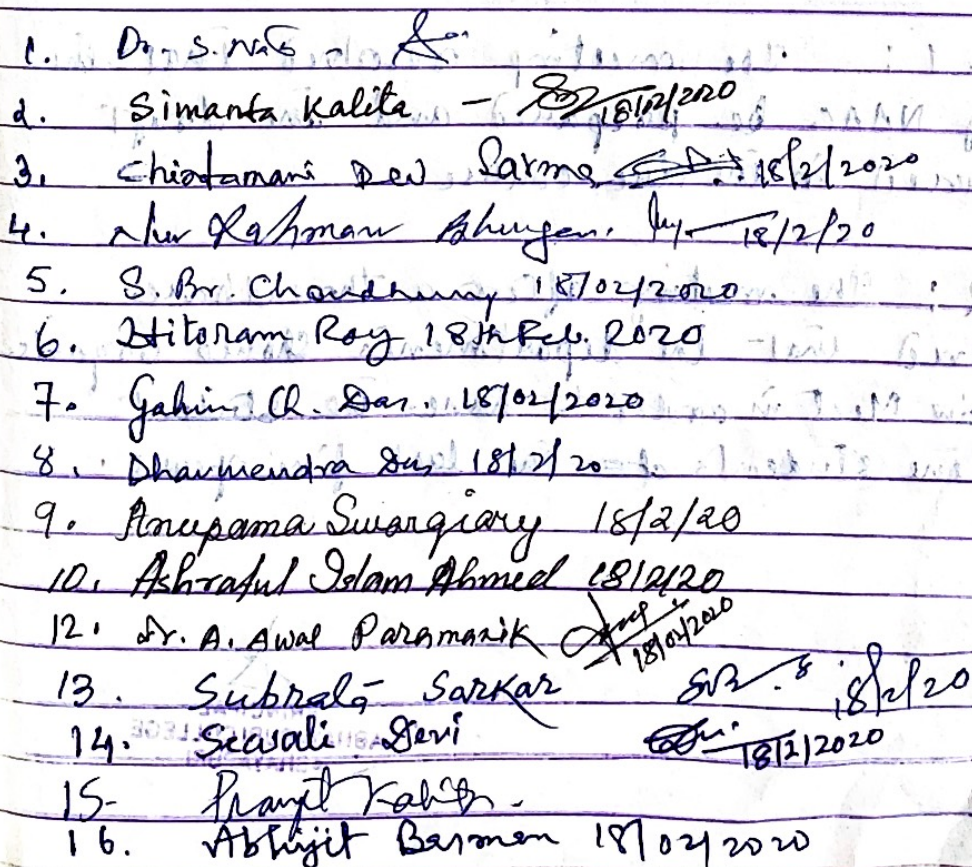 1. Dr. S. Nath -
2. Simanta Kalita - 18/02/2020
3. Chintamani Dev Sarma 18/2/2020
4. Nur Rahman Bhuyan. 18/2/20
5. S. Br. Choudhury 18/02/2020.
6. Hitoram Roy 18th Feb. 2020
7. Gahin Ch. Das. 18/02/2020
8. Dharmendra Das 18/2/20
9. Anupama Swargiary 18/2/20
10. Ashraful Islam Ahmed 18/2/20
12. Dr. A. Awal Paramanik 18/02/2020
13. Subrata Sarkar 18/2/20
14. Sewali Devi 18/2/2020
15- Pranjit Kalita.
16. Abhijit Barman 18/02/2020